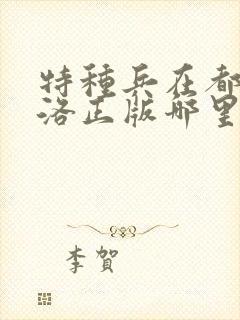 特種兵在都
洛正版哪里
李賀